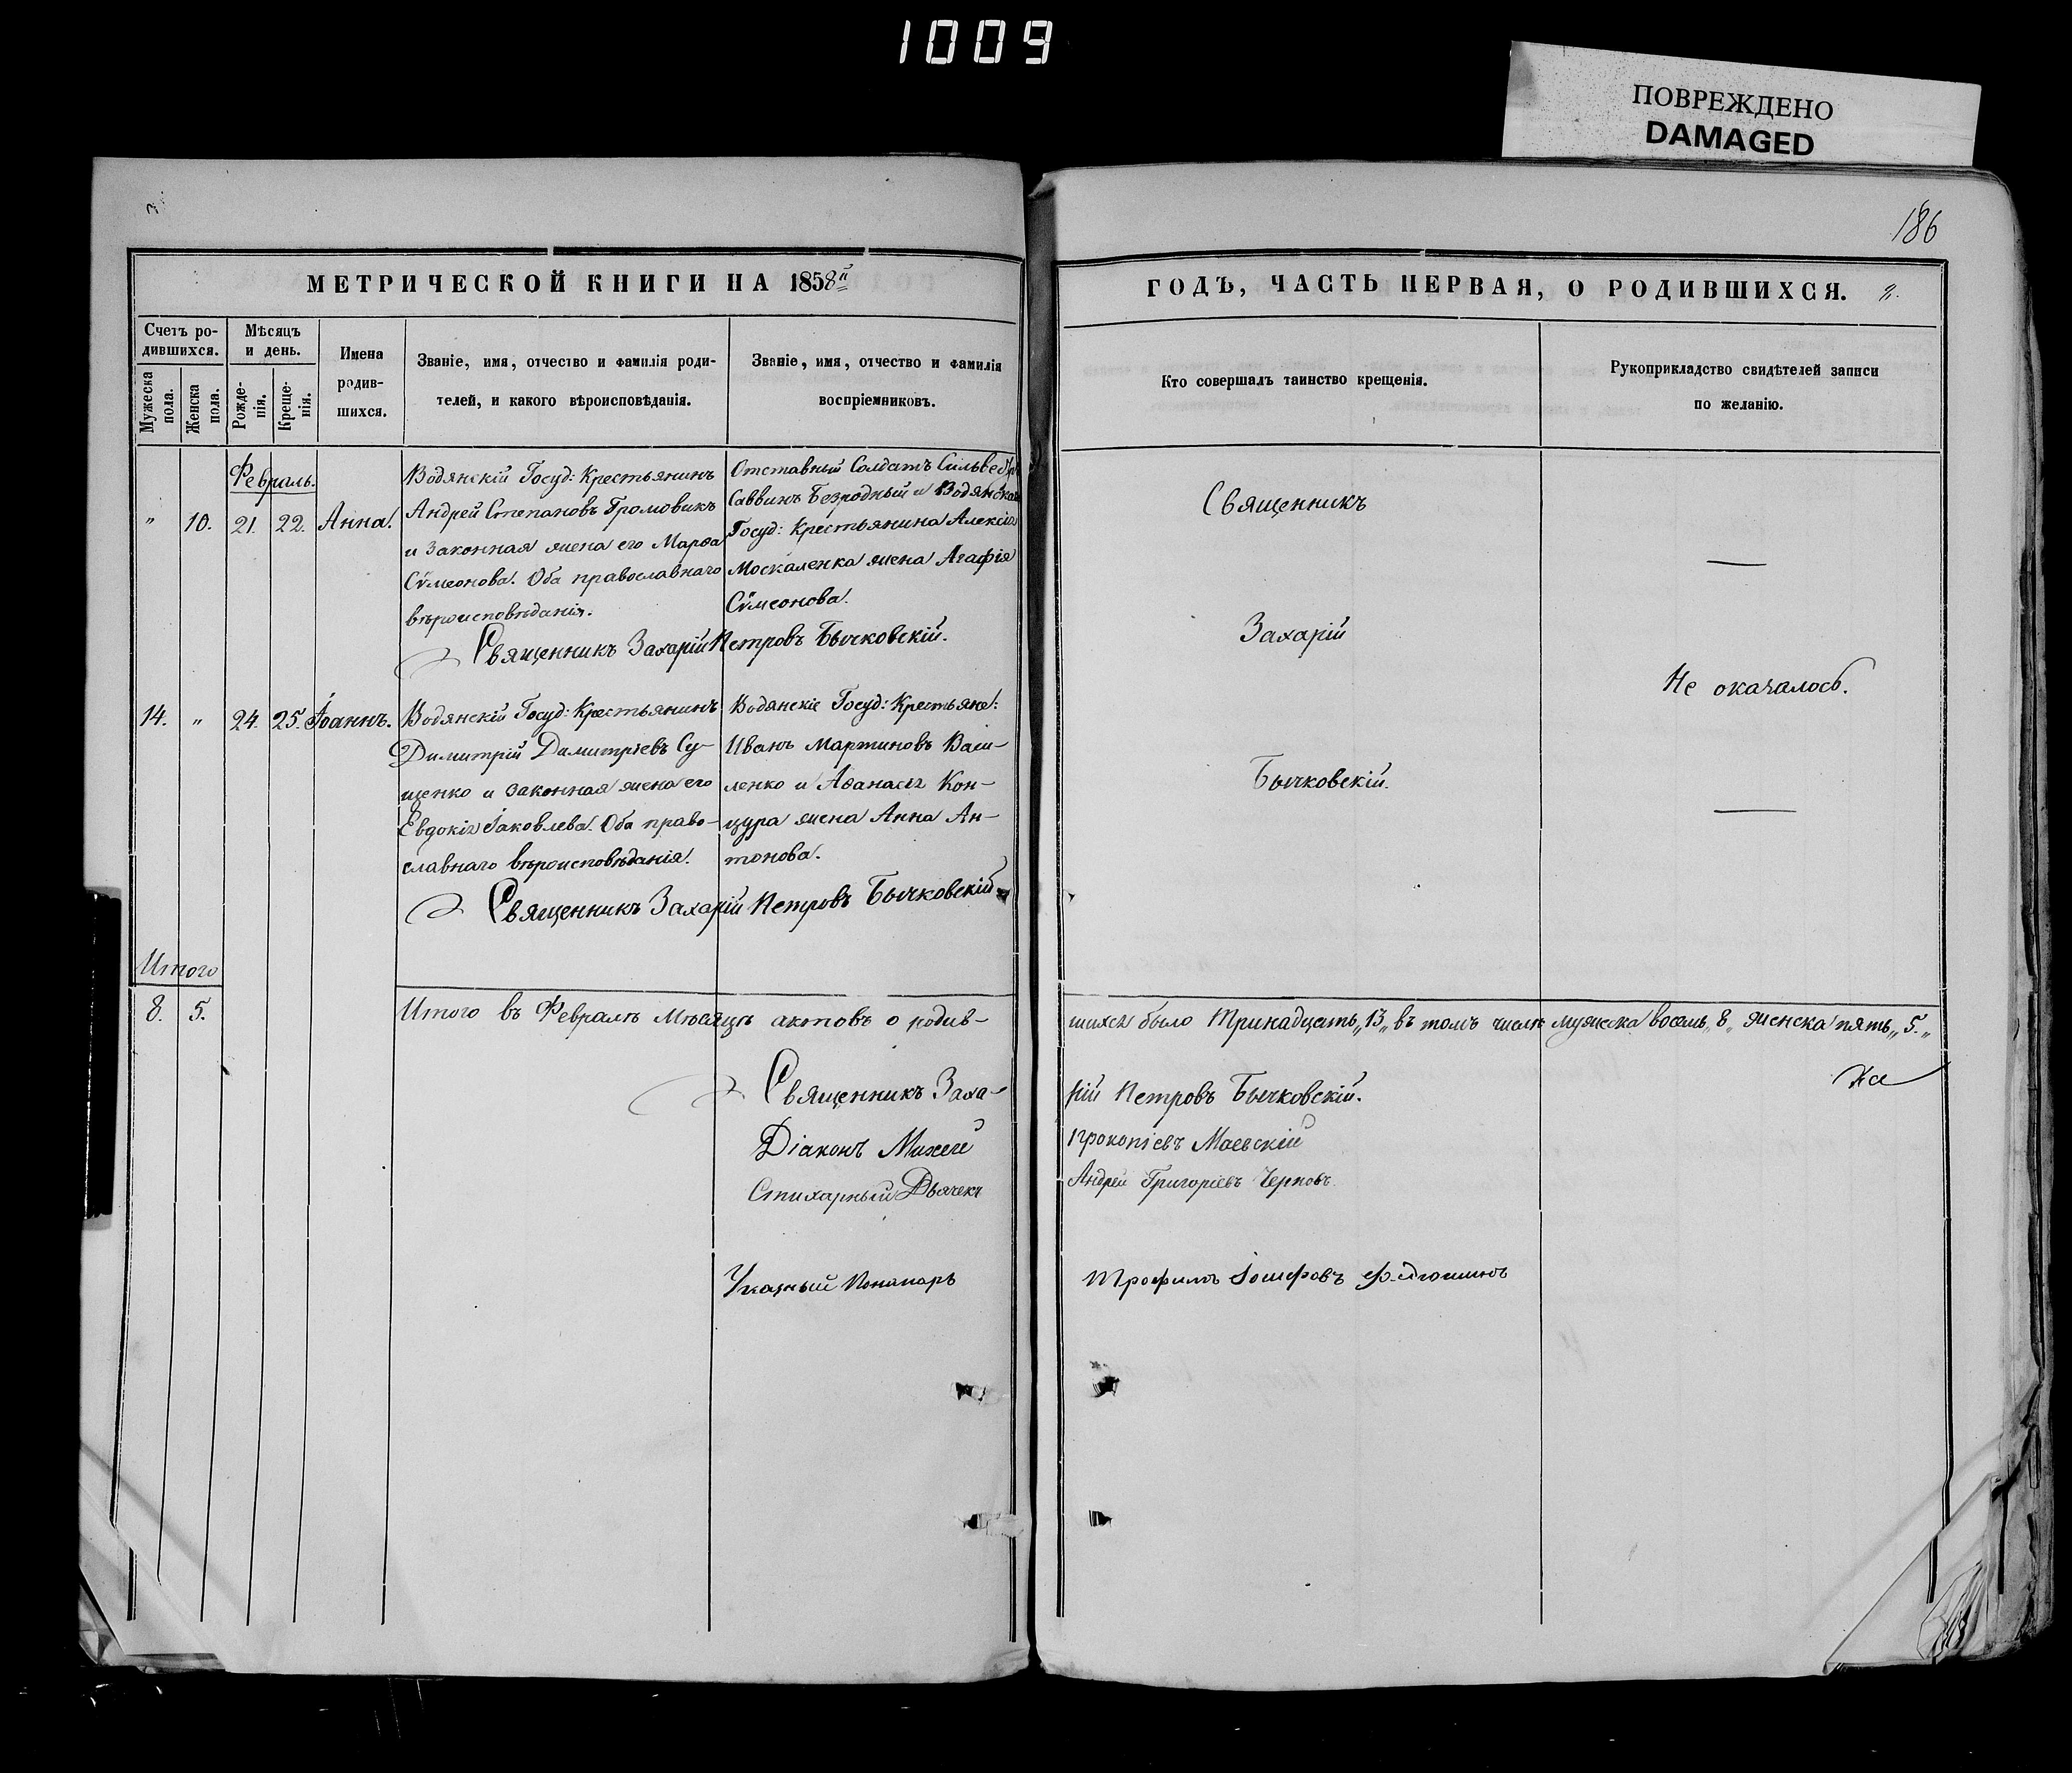 1009
ПОВРЕЖДЕНО
DAMAGED
186
МЕТРИЧЕСКОЙ КНИГИ НА 1858й
Счетъ ро-
дившихся.
Мужеска
пола.
Женска
пола.
Мѣсяцъ
и день.
Рожде-
нія.
Креще-
нія.
Имена
родив-
шихся.
Званіе, имя, отчество и фамилія роди-
телей, и какого вѣроисповѣданія.
Званіе, имя, отчество и фамилія
воспріемниковъ.
Февраль.
„ 10. 21. 22. Анна.
Водянскій Госуд: Крестьянинъ
Андрей Степановъ Громовикъ
и законная жена его Марѳа
Сѵмеонова. Оба православнаго
вѣроисповѣданія.
Отставный Солдатъ Сильвестръ
Саввинъ Безродный и Водянскаго
Госуд: Крестьянина Алексія
Москаленка жена Агафія
Сѵмеонова.
Священникъ Захарій Петровъ Бычковскій.
14. „ 24. 25. Іоаннъ.
Водянскій Госуд: Крестьянинъ
Димитрій Димитріевъ Су-
щенко и законная жена его
Евдокія Іаковлева. Оба право-
славнаго вѣроисповѣданія.
Водянскіе Госуд: Крестьяне:
Иванъ Мартиновъ Васи-
ленко и Аѳанасія Кон-
цура жена Анна Ан-
тонова.
Священникъ Захарій Петровъ Бычковскій
Итого
8. 5.
Итого въ Февралѣ Мѣсяцѣ актовъ о родив-
Священникъ Заха-
Діаконъ Михей
Стихарный Дьячекъ
Указный Пономарь
ГОДЪ, ЧАСТЬ ПЕРВАЯ, О РОДИВШИХСЯ.
Кто совершалъ таинство крещенія.
Рукоприкладство свидѣтелей записи
по желанію.
Священникъ
Захарій
Бычковскій.
Не оказалось.
шихся было Тринадцать „13„ въ томъ числѣ мужеска восемь „8„ женска пять „5.„
рій Петровъ Бычковскій.
Прокопіевъ Маевскій
Андрей Григоріевъ Черновъ.
Трофимъ Іосифовъ